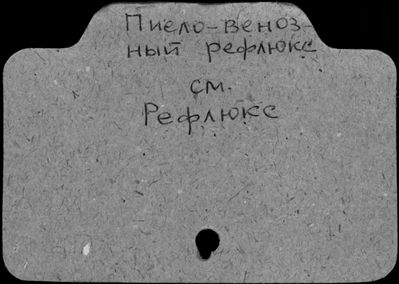 Пиело-веноз-
ный рефлюкс
см.
Рефлюкс